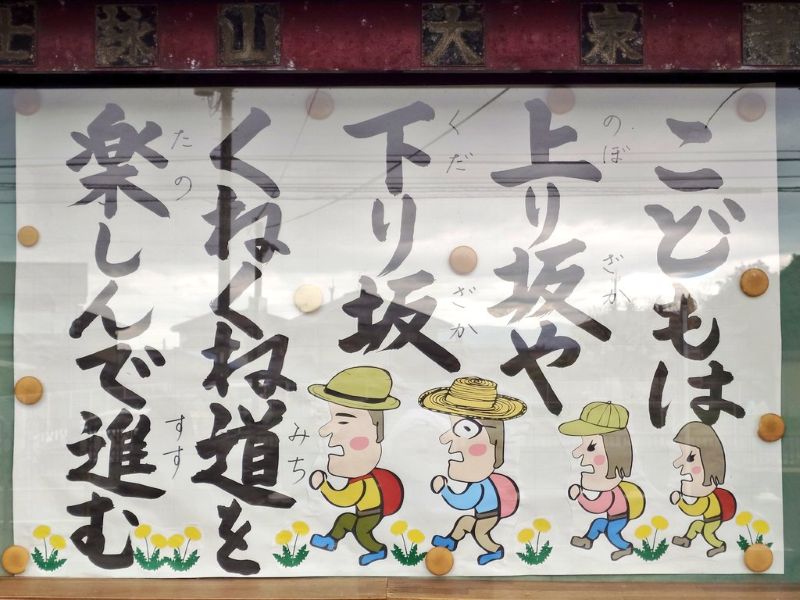 こどもは
上り坂や
のぼ
ざか
下り坂
くだ
ざか
くねくね道を
みち
楽しんで進む
たの
すす
山
大
泉